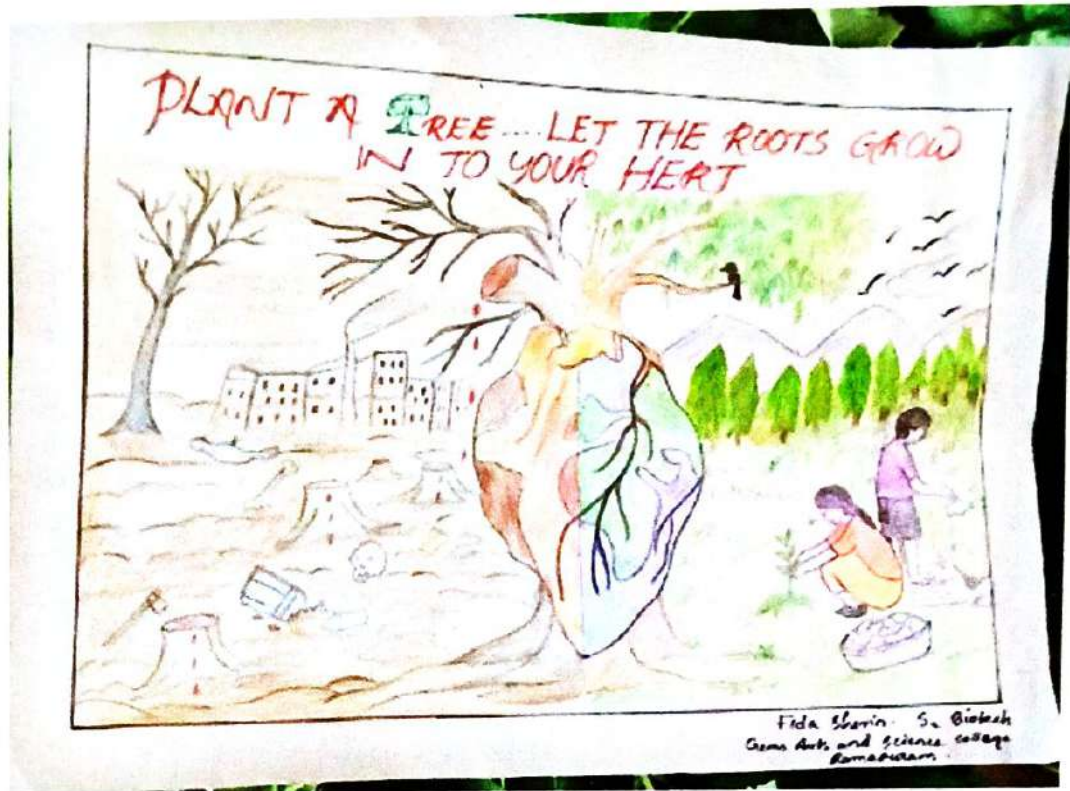 PLANT A TREE .... LET THE ROOTS GROW
IN TO YOUR HERT
Fida Sherin. S. Biotech
Gems Arts and Science College
Ramapuram.